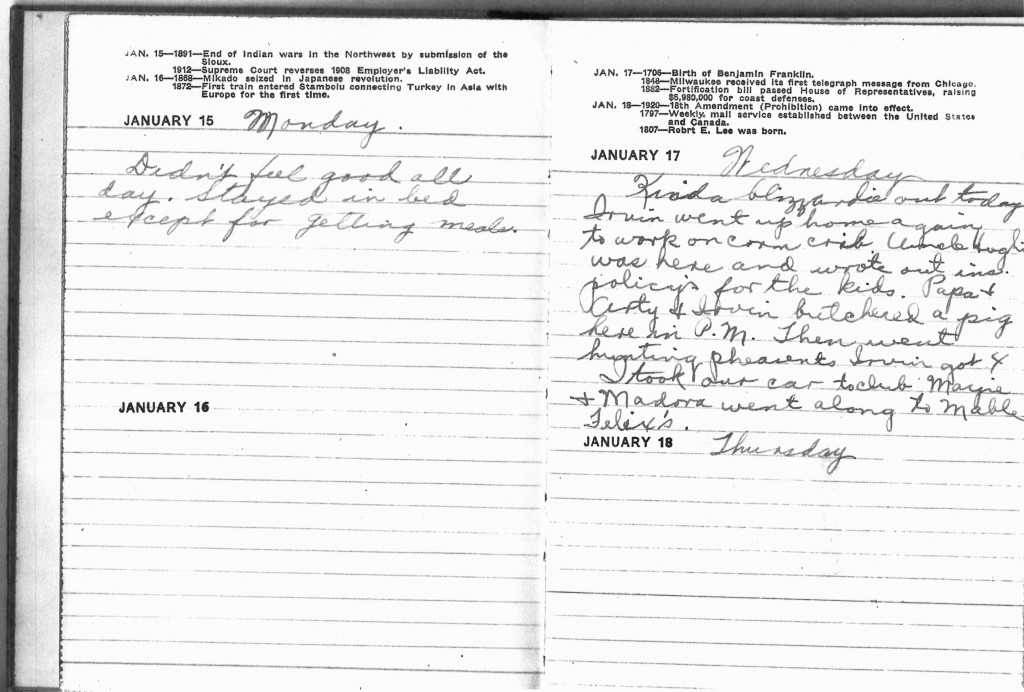 JAN. 15—1891—End of Indian wars in the Northwest by submission of the
Sioux.
1912—Supreme Court reverses 1908 Employer's Liability Act.
JAN. 16—1868—Mikado seized in Japanese revolution.
1872—First train entered Stambolu connecting Turkey in Asia with
Europe for the first time.
JANUARY 15 Monday.
Didn't feel good all
day. Stayed in bed
except for getting meals.
JANUARY 16
JAN. 17—1706—Birth of Benjamin Franklin.
1848—Milwaukee received its first telegraph message from Chicago.
1882—Fortification bill passed House of Representatives, raising
$5,980,000 for coast defenses.
JAN. 18—1920—18th Amendment (Prohibition) came into effect.
1797—Weekly mail service established between the United States
and Canada.
1807—Robrt E. Lee was born.
JANUARY 17 Wednesday
Kinda blizzardie out today
Irvin went up home again
to work on corn crib. Uncle
was here and wrote out ins.
policys for the kids. Papa &
Arty & Irvin butchered a pig
here in P.M. Then went
hunting pheasents Irvin got 4
I took our car to club Margie
& Madora went along to Mable
Felix's.
JANUARY 18 Thursday